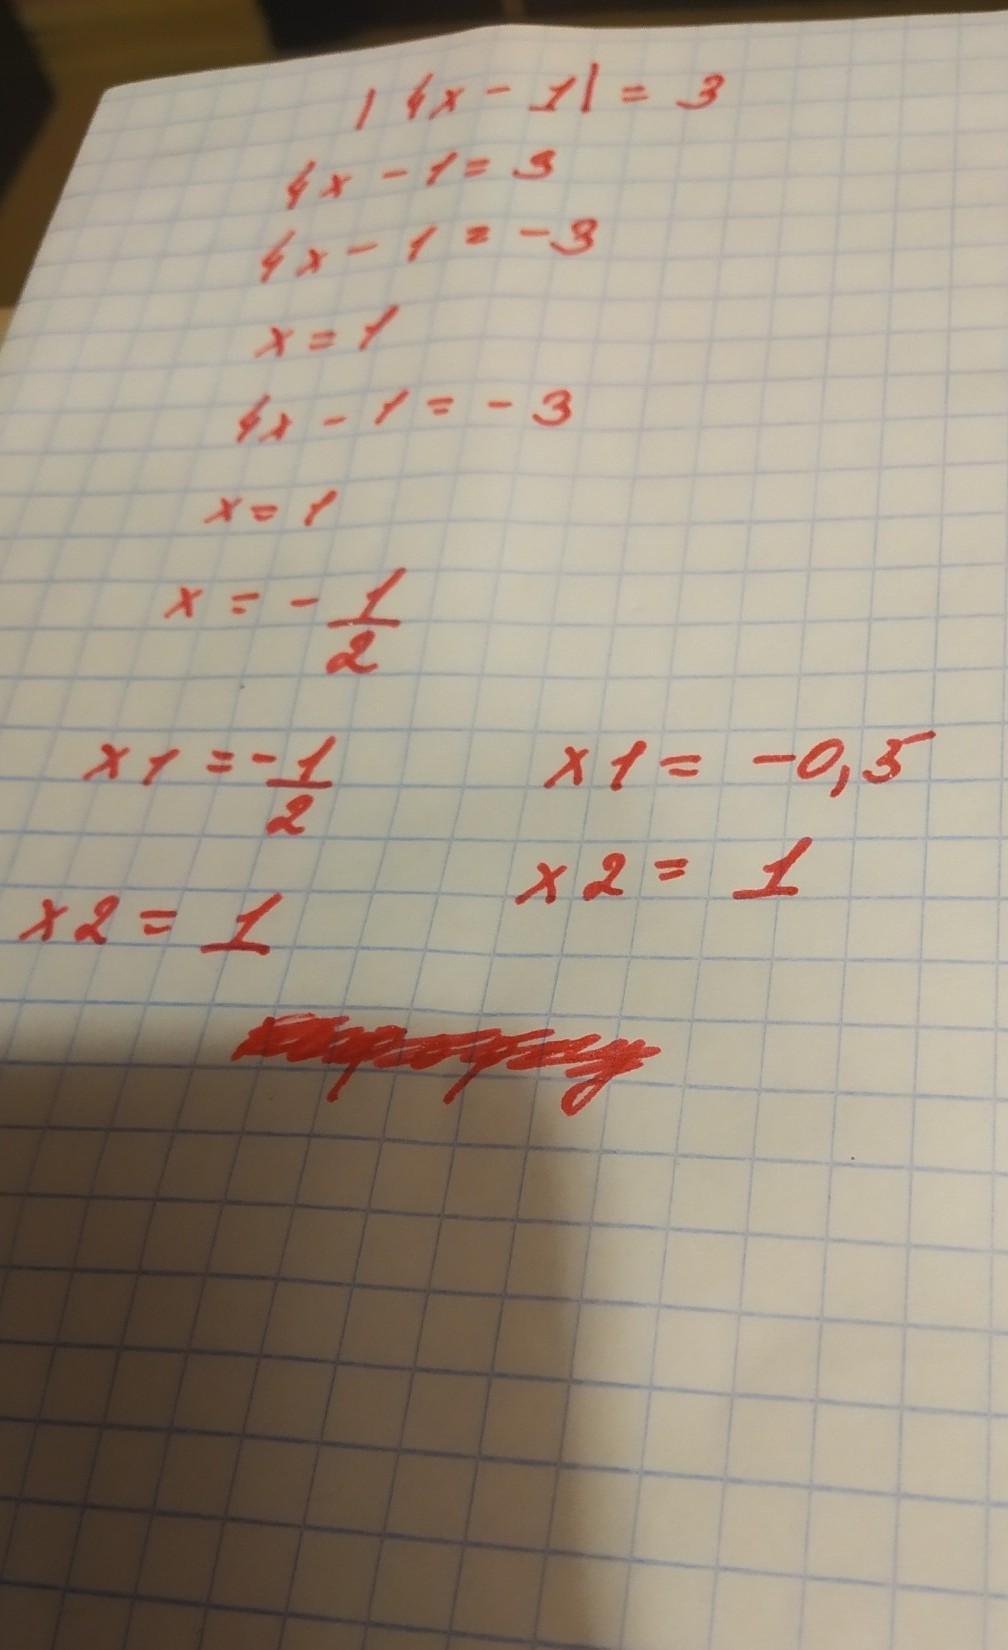 |4x - 1| = 3
4x - 1 = 3
4x - 1 = -3
x = 1
4x - 1 = -3
x = 1
x = - 1/2
x1 = - 1/2
x2 = 1
x1 = -0,5
x2 = 1